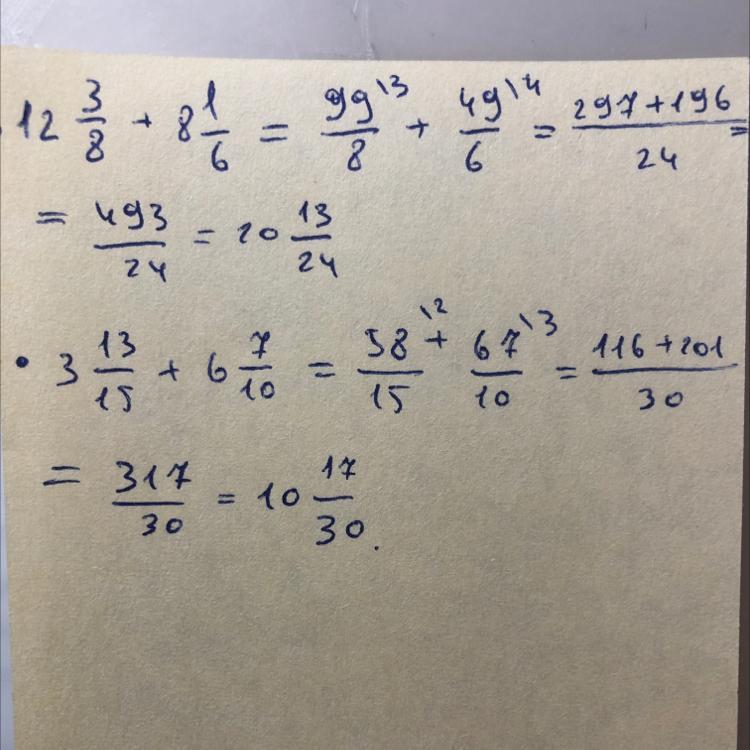 12 3/8 + 8 1/6 = 99\3/8 + 49\4/6 = 297+196/24 =
= 493/24 = 20 13/24
• 3 13/15 + 6 7/10 = 58\2/15 + 67\3/10 = 116+201/30
= 317/30 = 10 17/30.